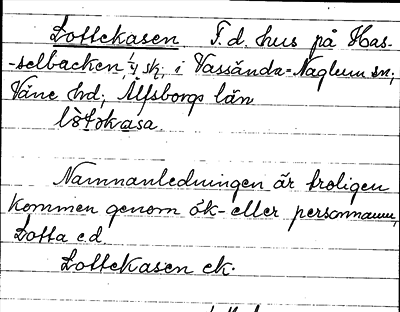 Lottekasen T.d. hus på Has-
-selbacken 1/4 sk; i Vassända-Naglum sn;
Väne hrd; Älfsborgs län
lòtəkasa
Namnanledningen är troligen
kommen genom ök- eller personnamn,
Lotta e d
Lottekasen ek.